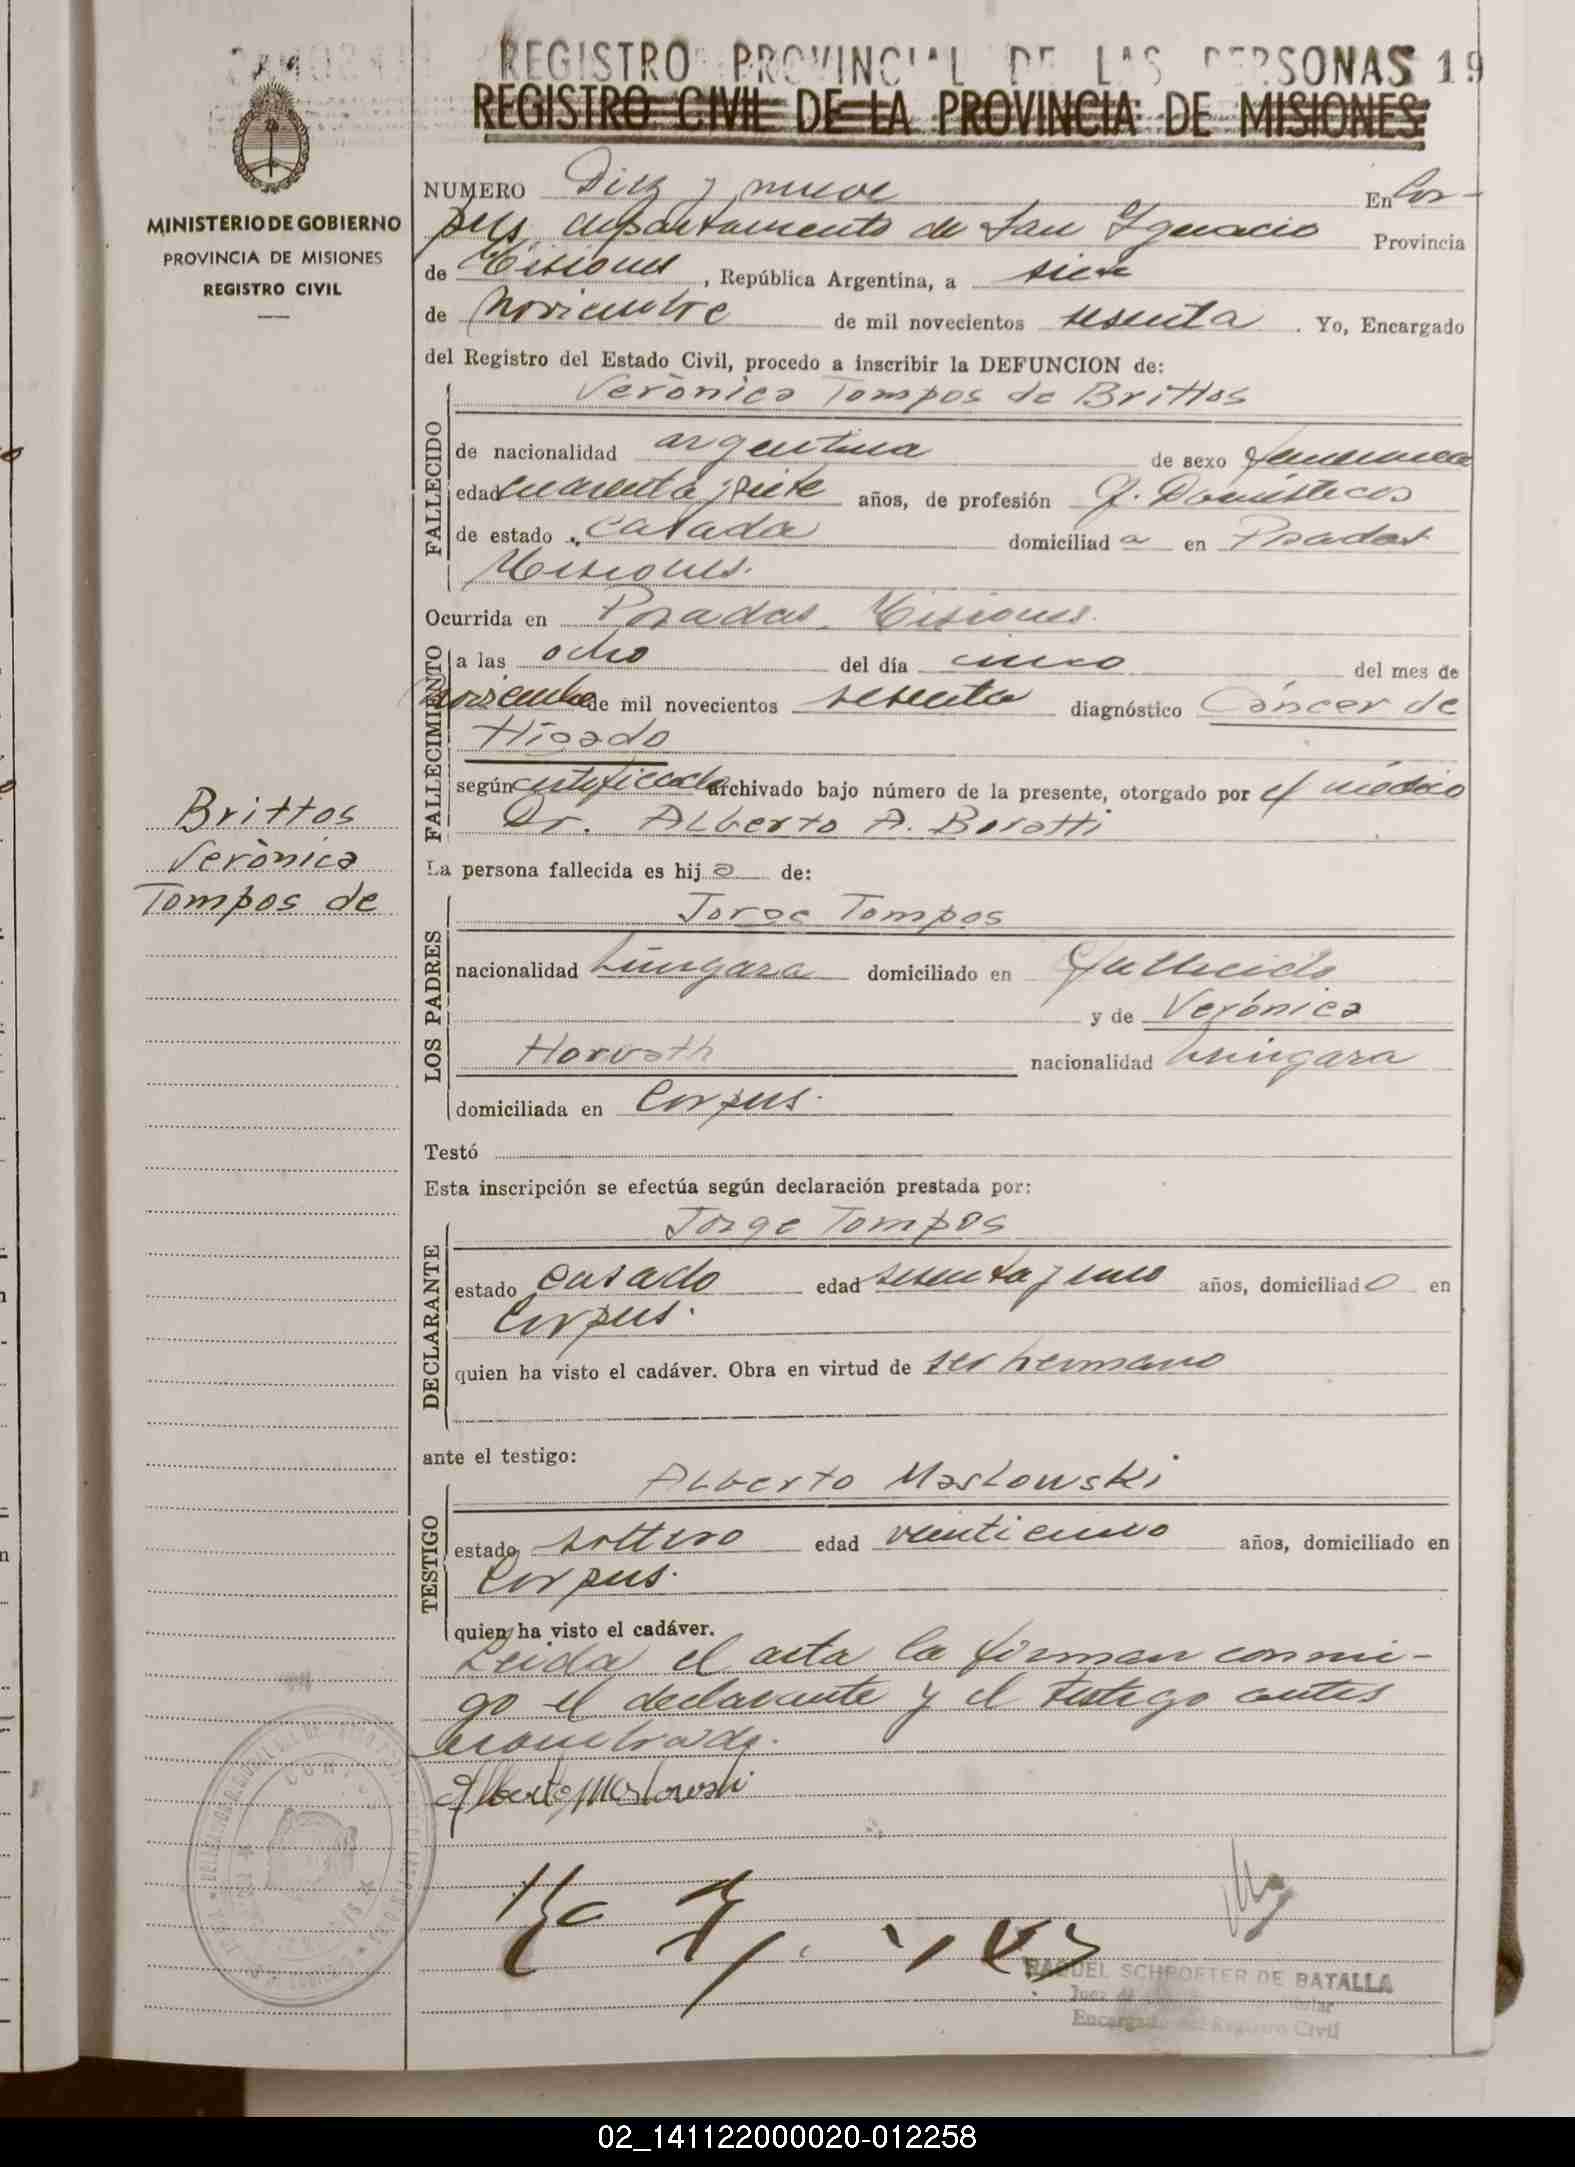 REGISTRO PROVINCIAL DE LAS PERSONAS 19
REGISTRO CIVIL DE LA PROVINCIA DE MISIONES
MINISTERIO DE GOBIERNO
PROVINCIA DE MISIONES
REGISTRO CIVIL
NUMERO Diez y nueve En Cor-
pus, departamento de San Ignacio Provincia
de Misiones, República Argentina, a siete
de noviembre de mil novecientos sesenta. Yo, Encargado
del Registro del Estado Civil, procedo a inscribir la DEFUNCION de:
Verònica Tompos de Brittos
FALLECIDO
de nacionalidad argentina de sexo femenino
edad cuarenta y siete años, de profesión Q. Domésticos
de estado casada domiciliad a en Posadas
Misiones.
Ocurrida en Posadas, Misiones.
FALLECIMIENTO
a las ocho del día cinco del mes de
noviembre de mil novecientos sesenta diagnóstico Cáncer de
Hígado
según certificado archivado bajo número de la presente, otorgado por el médico
Dr. Alberto A. Boratti
Brittos
Verònica
Tompos de
La persona fallecida es hij a de:
LOS PADRES
Jorge Tompos
nacionalidad húngara domiciliado en fallecido
y de Verónica
Horvath nacionalidad húngara
domiciliada en Corpus.
Testó
Esta inscripción se efectúa según declaración prestada por:
DECLARANTE
Jorge Tompos
estado casado edad sesenta y uno años, domiciliad o en
Corpus.
quien ha visto el cadáver. Obra en virtud de ser hermano
ante el testigo:
TESTIGO
Alberto Maslowski
estado soltero edad veinticinco años, domiciliado en
Corpus.
quien ha visto el cadáver.
Leida el acta la firman conmi-
go el declarante y el testigo antes
nombrado.
Alberto Maslowski
RAQUEL SCHROETER DE BATALLA
Encargada del Registro Civil
02_141122000020-012258